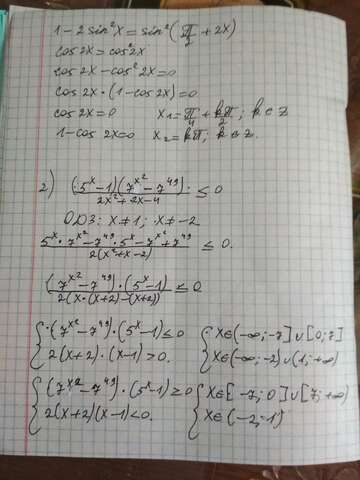 1 - 2 sin²x = sin²(π/2 + 2x)
cos 2x = cos² 2x
cos 2x - cos² 2x = 0
cos 2x · (1 - cos 2x) = 0
cos 2x = 0 x₁ = π/4 + kπ/2; k ∈ z
1 - cos 2x = 0 x₂ = kπ; k ∈ z.
2) (5^x - 1)(7^(x²) - 7^49) / (2x² + 2x - 4) ≤ 0
ОДЗ: x ≠ 1; x ≠ -2
(5^x · 7^(x²) - 7^49 · 5^x - 7^(x²) + 7^49) / (2(x² + x - 2)) ≤ 0.
((7^(x²) - 7^49) · (5^x - 1)) / (2(x · (x+2) - (x+2))) ≤ 0
{ (7^(x²) - 7^49) · (5^x - 1) ≤ 0 { x ∈ (-∞; -7] ∪ [0; 7]
2(x+2) · (x-1) > 0. x ∈ (-∞; -2) ∪ (1; +∞)
{ (7^(x²) - 7^49) · (5^x - 1) ≥ 0 { x ∈ [-7; 0] ∪ [7; +∞)
2(x+2)(x-1) < 0. x ∈ (-2; 1)